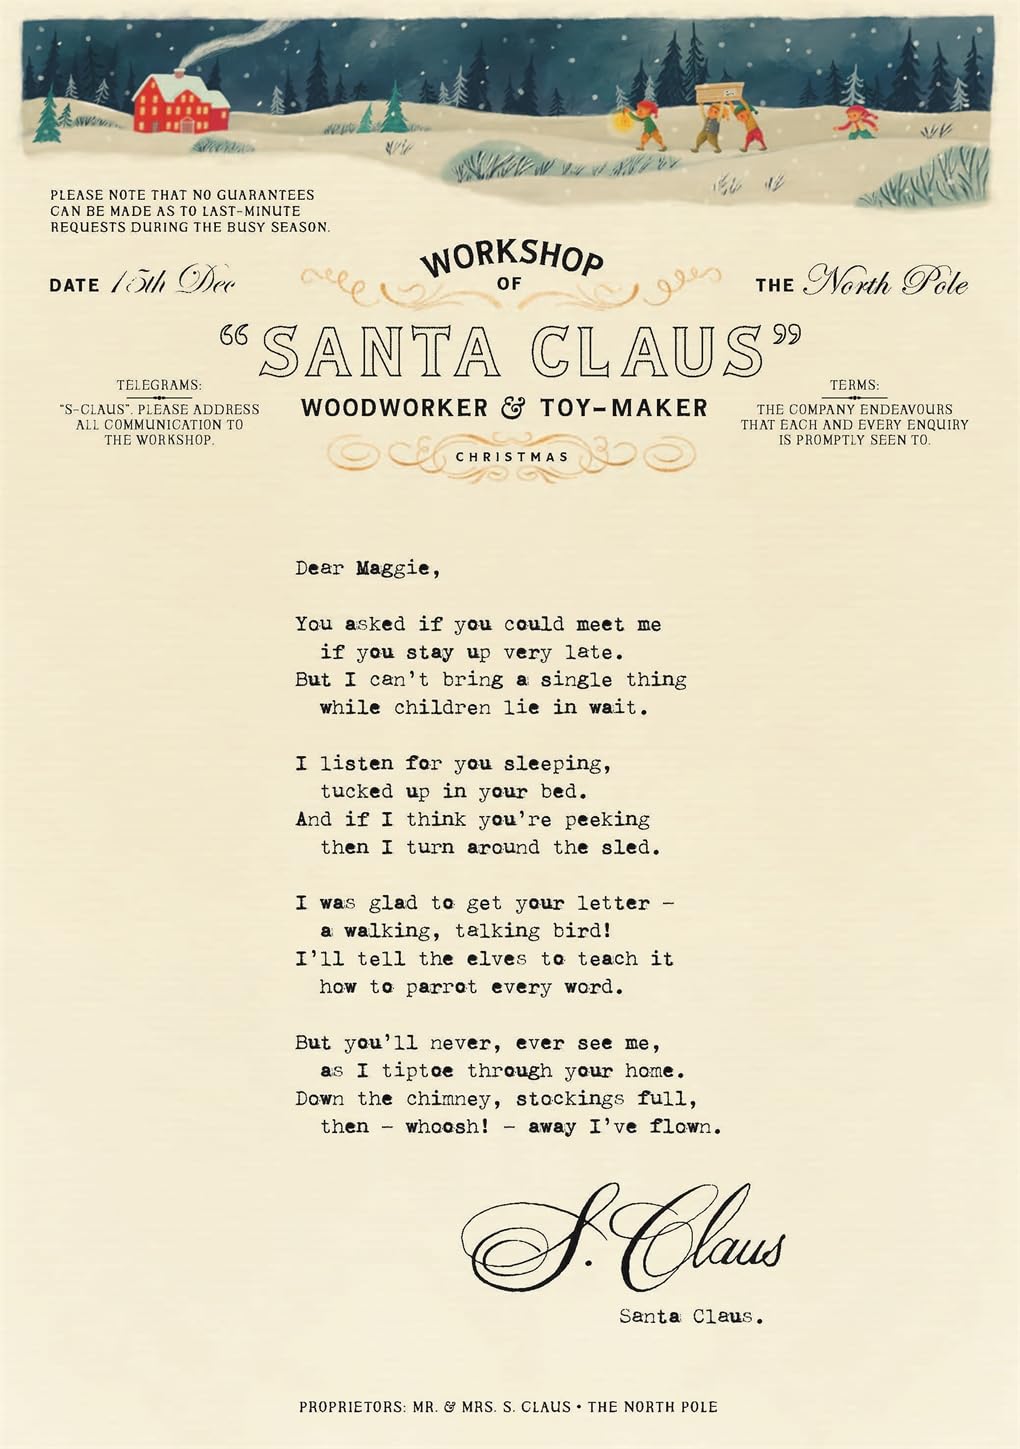 PLEASE NOTE THAT NO GUARANTEES
CAN BE MADE AS TO LAST-MINUTE
REQUESTS DURING THE BUSY SEASON.
DATE 15th Dec
WORKSHOP
OF
THE North Pole
“SANTA CLAUS”
WOODWORKER & TOY-MAKER
CHRISTMAS
TELEGRAMS:
“S-CLAUS”. PLEASE ADDRESS
ALL COMMUNICATION TO
THE WORKSHOP.
TERMS:
THE COMPANY ENDEAVOURS
THAT EACH AND EVERY ENQUIRY
IS PROMPTLY SEEN TO.
Dear Maggie,
You asked if you could meet me
if you stay up very late.
But I can't bring a single thing
while children lie in wait.
I listen for you sleeping,
tucked up in your bed.
And if I think you're peeking
then I turn around the sled.
I was glad to get your letter –
a walking, talking bird!
I'll tell the elves to teach it
how to parrot every word.
But you'll never, ever see me,
as I tiptoe through your home.
Down the chimney, stockings full,
then – whoosh! – away I've flown.
S. Claus
Santa Claus.
PROPRIETORS: MR. & MRS. S. CLAUS • THE NORTH POLE